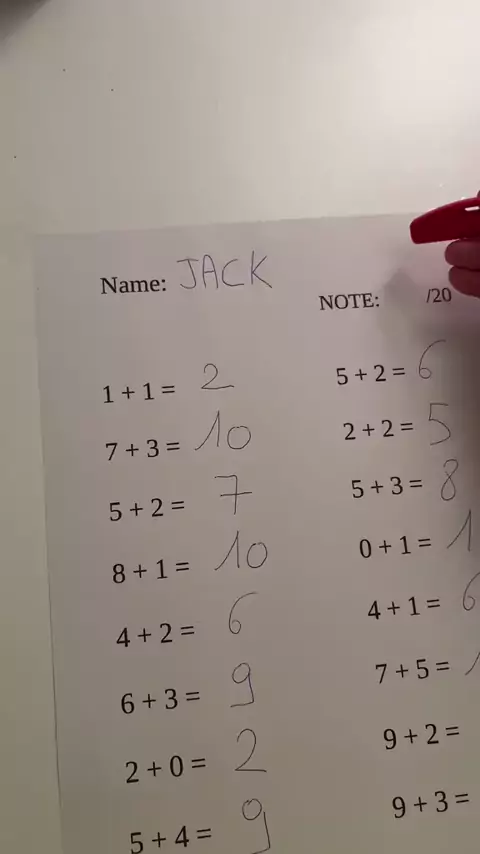 Name: JACK
NOTE: /20
1 + 1 = 2
7 + 3 = 10
5 + 2 = 7
8 + 1 = 10
4 + 2 = 6
6 + 3 = 9
2 + 0 = 2
5 + 4 = 9
5 + 2 = 6
2 + 2 = 5
5 + 3 = 8
0 + 1 = 1
4 + 1 = 6
7 + 5 =
9 + 2 =
9 + 3 =